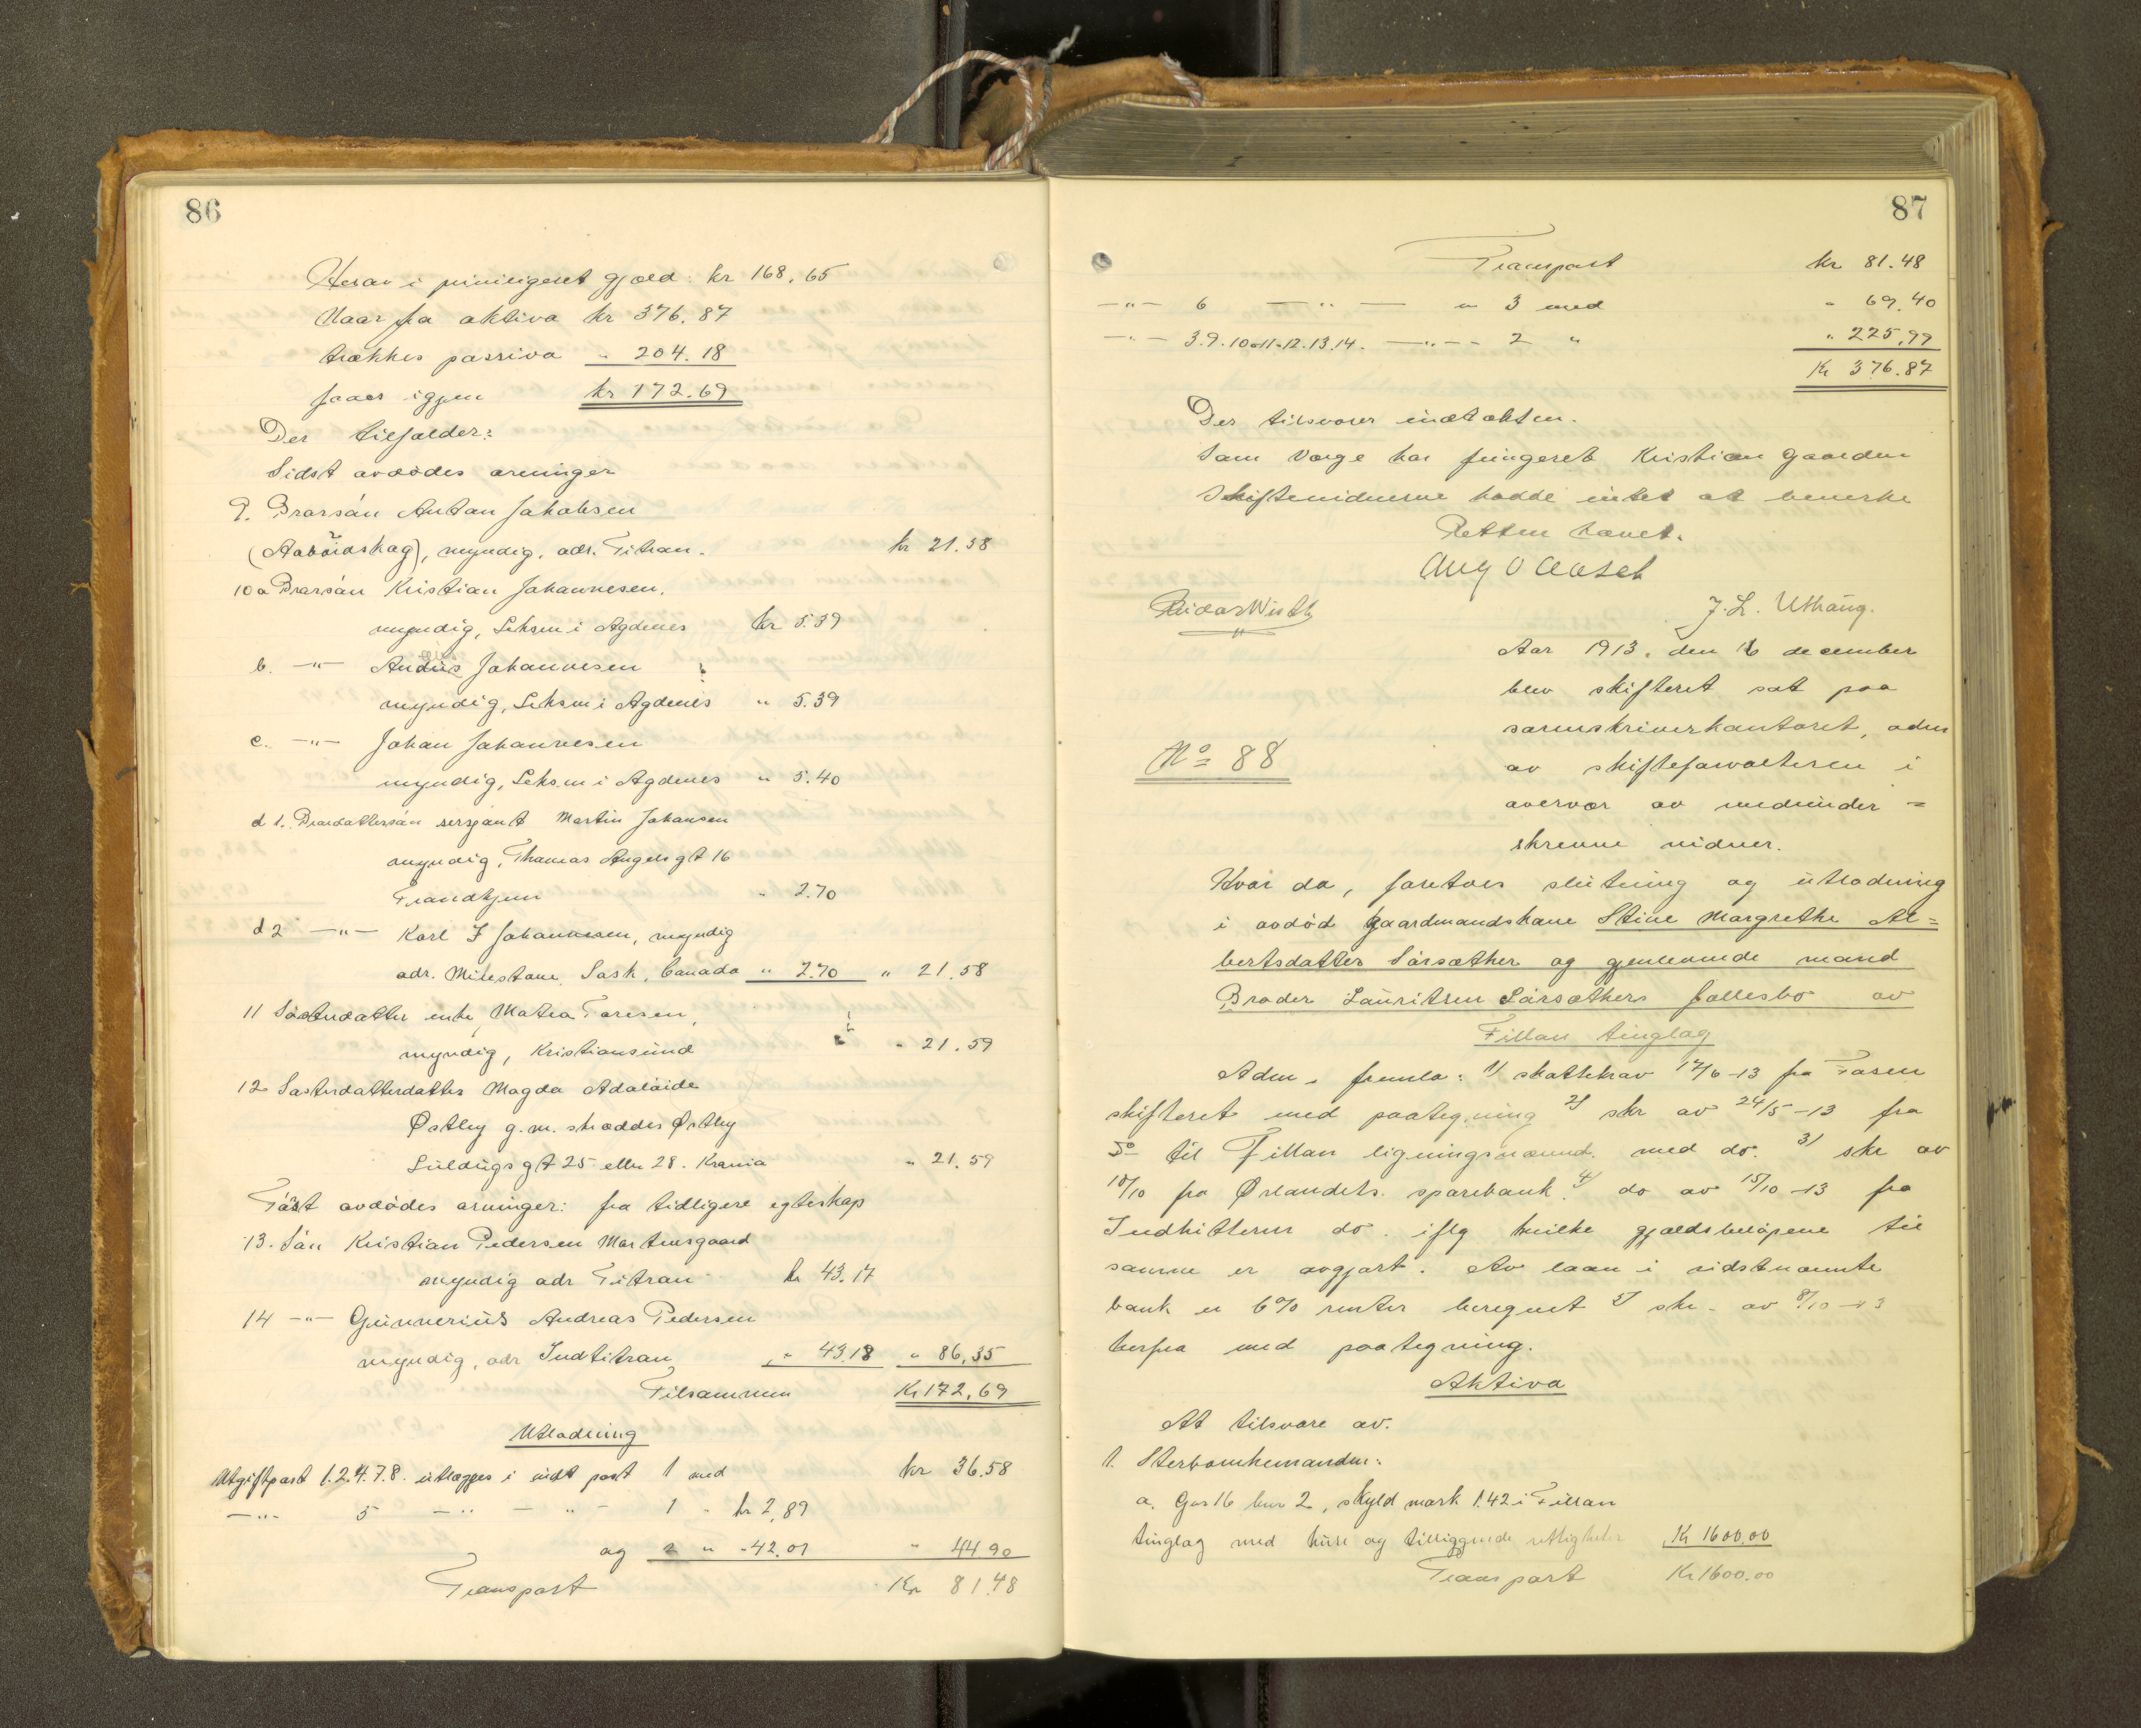 86
Herav i priviligeret gjæld: kr 168.65
Naar fra aktiva kr 376.87
trækkes passiva " 204.18
faaes igjen kr 172.69
Der tilfalder:
Sidst avdødes arvinger
9. Brorsøn Anton Jakobsen
myndig, adr. Titran. kr 21.58
10a Brorsøn Kristian Johannesen,
myndig, Leksen i Agdenes kr 5.39
b. -"- Johannesen
myndig, Leksen i Agdenes " 5.39
c. -"- Johan Johannesen
myndig, Leksen i Agdenes " 5.40
d 1. Brordattersøn sersjant Martin Johansen
myndig, Thomas Angels gt 16
Trondhjem " 2.70
d 2 -"- Karl J Johannesen, myndig
adr. Milestone, Sask, Canada " 2.70 " 21.58
11 Søsterdatter enke Matea Toresen,
myndig, Kristiansund " 21.59
12 Søsterdatterdatter Magda Adelaide
Østby g.m. skrædder Østby
gt 25 eller 28. Krania " 21.59
Først avdødes arvinger: fra tidligere egteskap
13. Søn Kristian Pedersen
myndig adr Titran kr 43.17
14 -"- Gunnerius Andreas Pedersen
myndig, adr Indtitran " 43.18 " 86,35
Tilsammen Kr 172,69
Utlodning
Utgiftpost 1.2.4.7.8. utlægges i indt post 1 med kr 36.58
-"- 5 -"- -"- 1 " kr 2,89
og 2 " " 42.01 " 44 90
Transport Kr 81.48
87
Transport kr 81.48
-"- 6 -"- " 3 med " 69.40
-"- 3.9.10.11.12.13.14. -"- 2 " " 225,99
Kr 376.87
Der tilsvarer indtækten.
Som verge har fungeret Kristian Gaarden
Skiftevidnerne hadde intet at bemerke
Retten hævet.
Reidar Wirth
J. L. Uthaug.
Aar 1913, den 16 december
blev skifteret sat paa
sorenskriverkontoret, adm
No 88
av skifteforvalteren i
overvær av medunder=
skrevne vidner.
Hvor da, foretoes slutning og utlodning
i avdød gaardmandskone Stine Margrethe Al=
bertsdatter Sørsæther og gjenlevende mand
Broder Lauritsen Sørsæthers fællesbo av
Fillan tinglag
Adm. fremla: 1/ skattekrav 17/6-13 fra Fosen
skifteret med paategning 2/ skr av 24/5-13 fra
Do til Fillan ligningsnævnd. med do. 3/ skr av
10/10 fra Ørlandets sparebank. 4/ do av 15/10-13 fra
Indhitterens do. iflg hvilke gjældsbeløpene til
samme er avgjort. Av laan i sidstnævnte
bank er 6% renter beregnet 5/ skr. av 8/10-13
herfra med paategning.
Aktiva
At tilsvare av.
1. Sterboenkemanden:
a. Gnr 16 bnr 2, skyld mark 1.42 i Fillan
tinglag med huse og tilliggende rettigheter Kr 1600.00
Transport Kr 1600.00